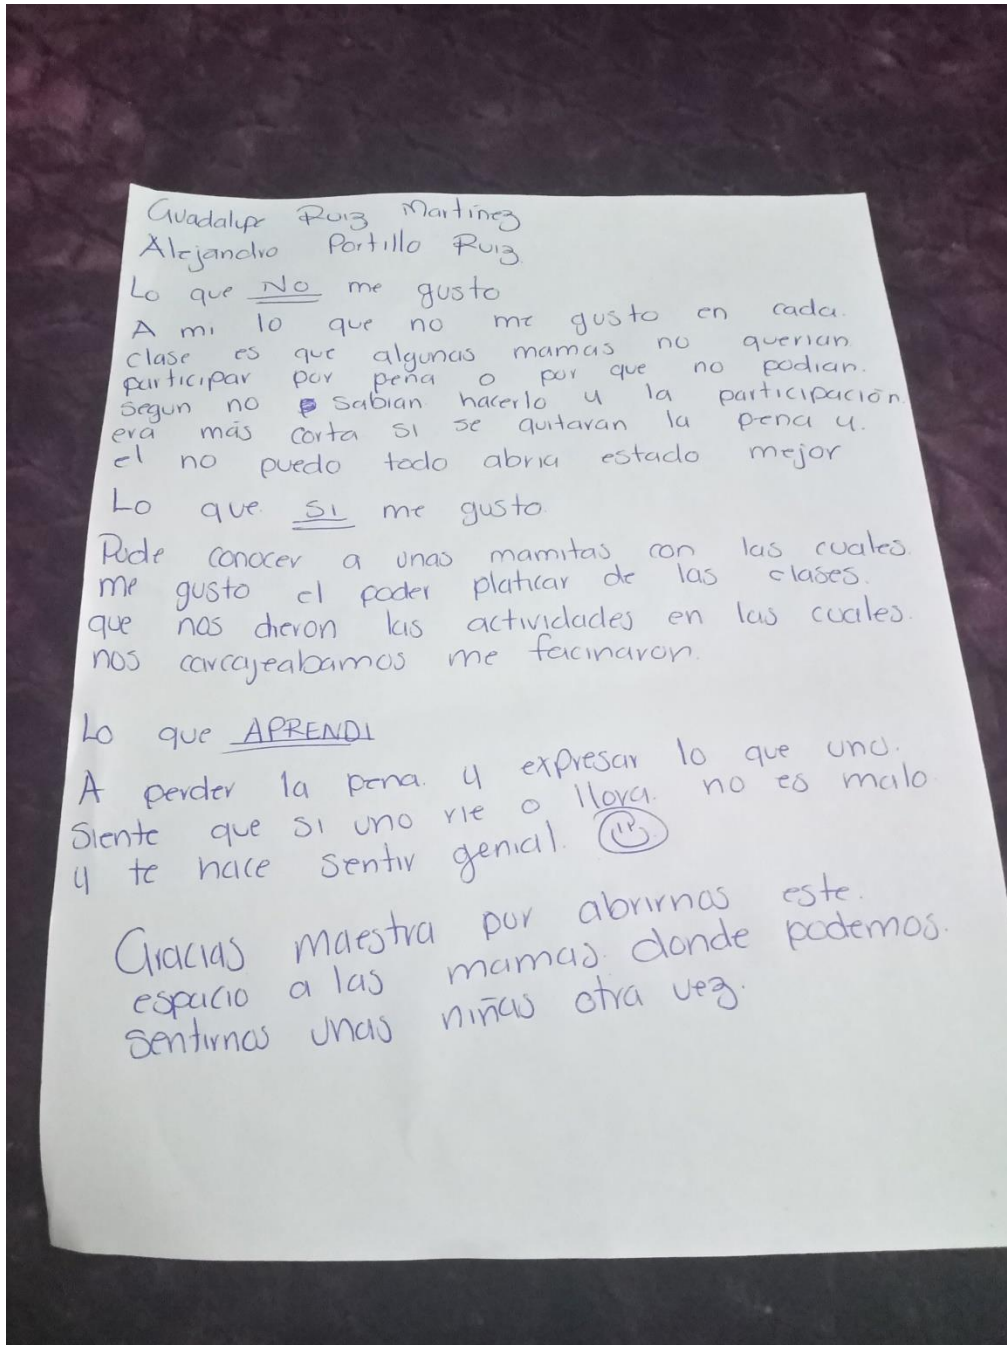 Guadalupe Ruiz Martínez
Alejandro Portillo Ruiz
Lo que NO me gusto
A mi lo que no me gusto en cada.
clase es que algunas mamas no querian
participar por pena o por que no podian.
segun no sabian hacerlo y la participación
era más corta si se quitaran la pena y.
el no puedo todo abria estado mejor
Lo que SI me gusto
Pude conocer a unas mamitas con las cuales
me gusto el poder platicar de las clases.
que nos dieron las actividades en las cuales.
nos carcajeabamos me facinaron.
Lo que APRENDI
A perder la pena. y expresar lo que uno.
siente que si uno rie o llora. no es malo
y te hace sentir genial.
Gracias maestra por abrirnos este.
espacio a las mamas. donde podemos.
sentirnos unas niñas otra vez.